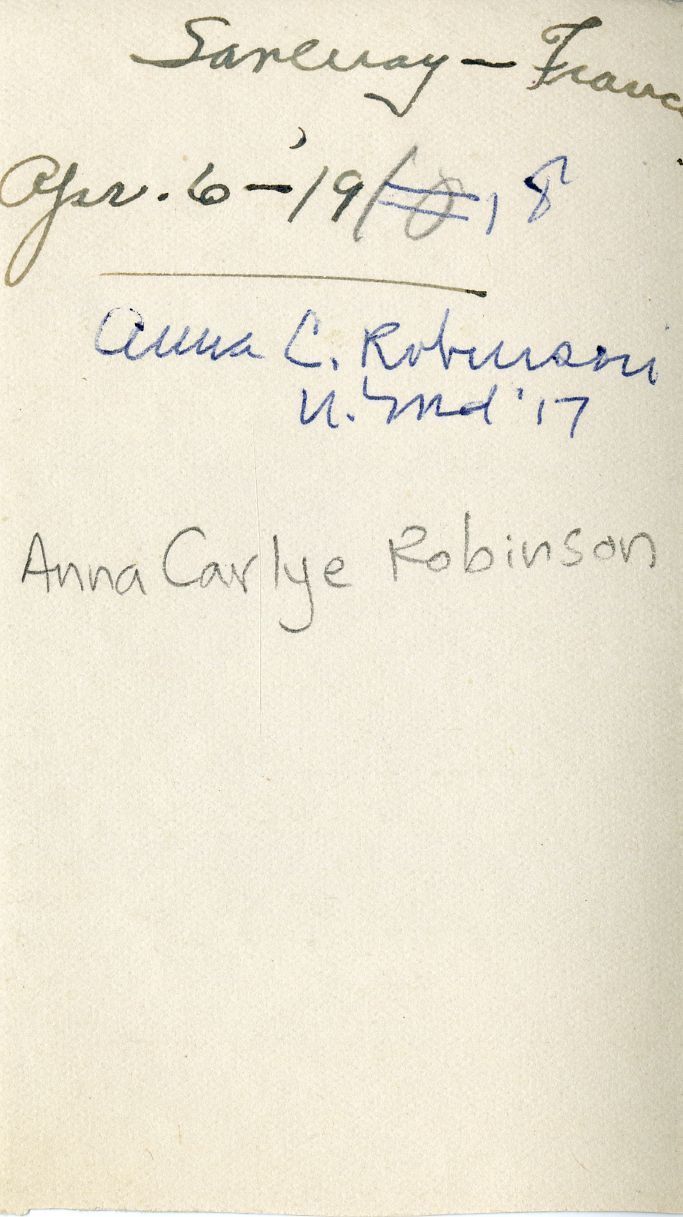 Savenay - Franc
Apr. 6 - 19 18
Anna C. Robinson
U. Md '17
Anna Carlye Robinson